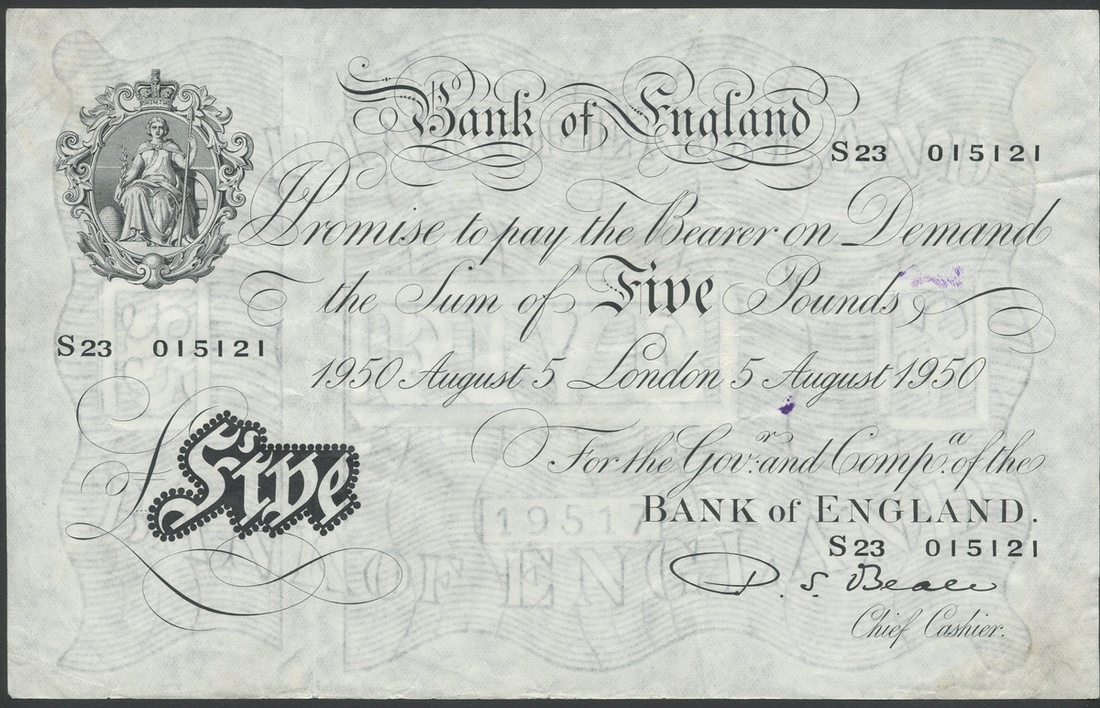 Bank of England
S23 015121
I Promise to pay the Bearer on Demand
the Sum of Five Pounds
S23 015121
1950 August 5 London 5 August 1950
£Five
For the Gov.r and Comp.a of the
BANK of ENGLAND.
1951
S23 015121
OF ENGLAND
P. S. Beale
Chief Cashier.